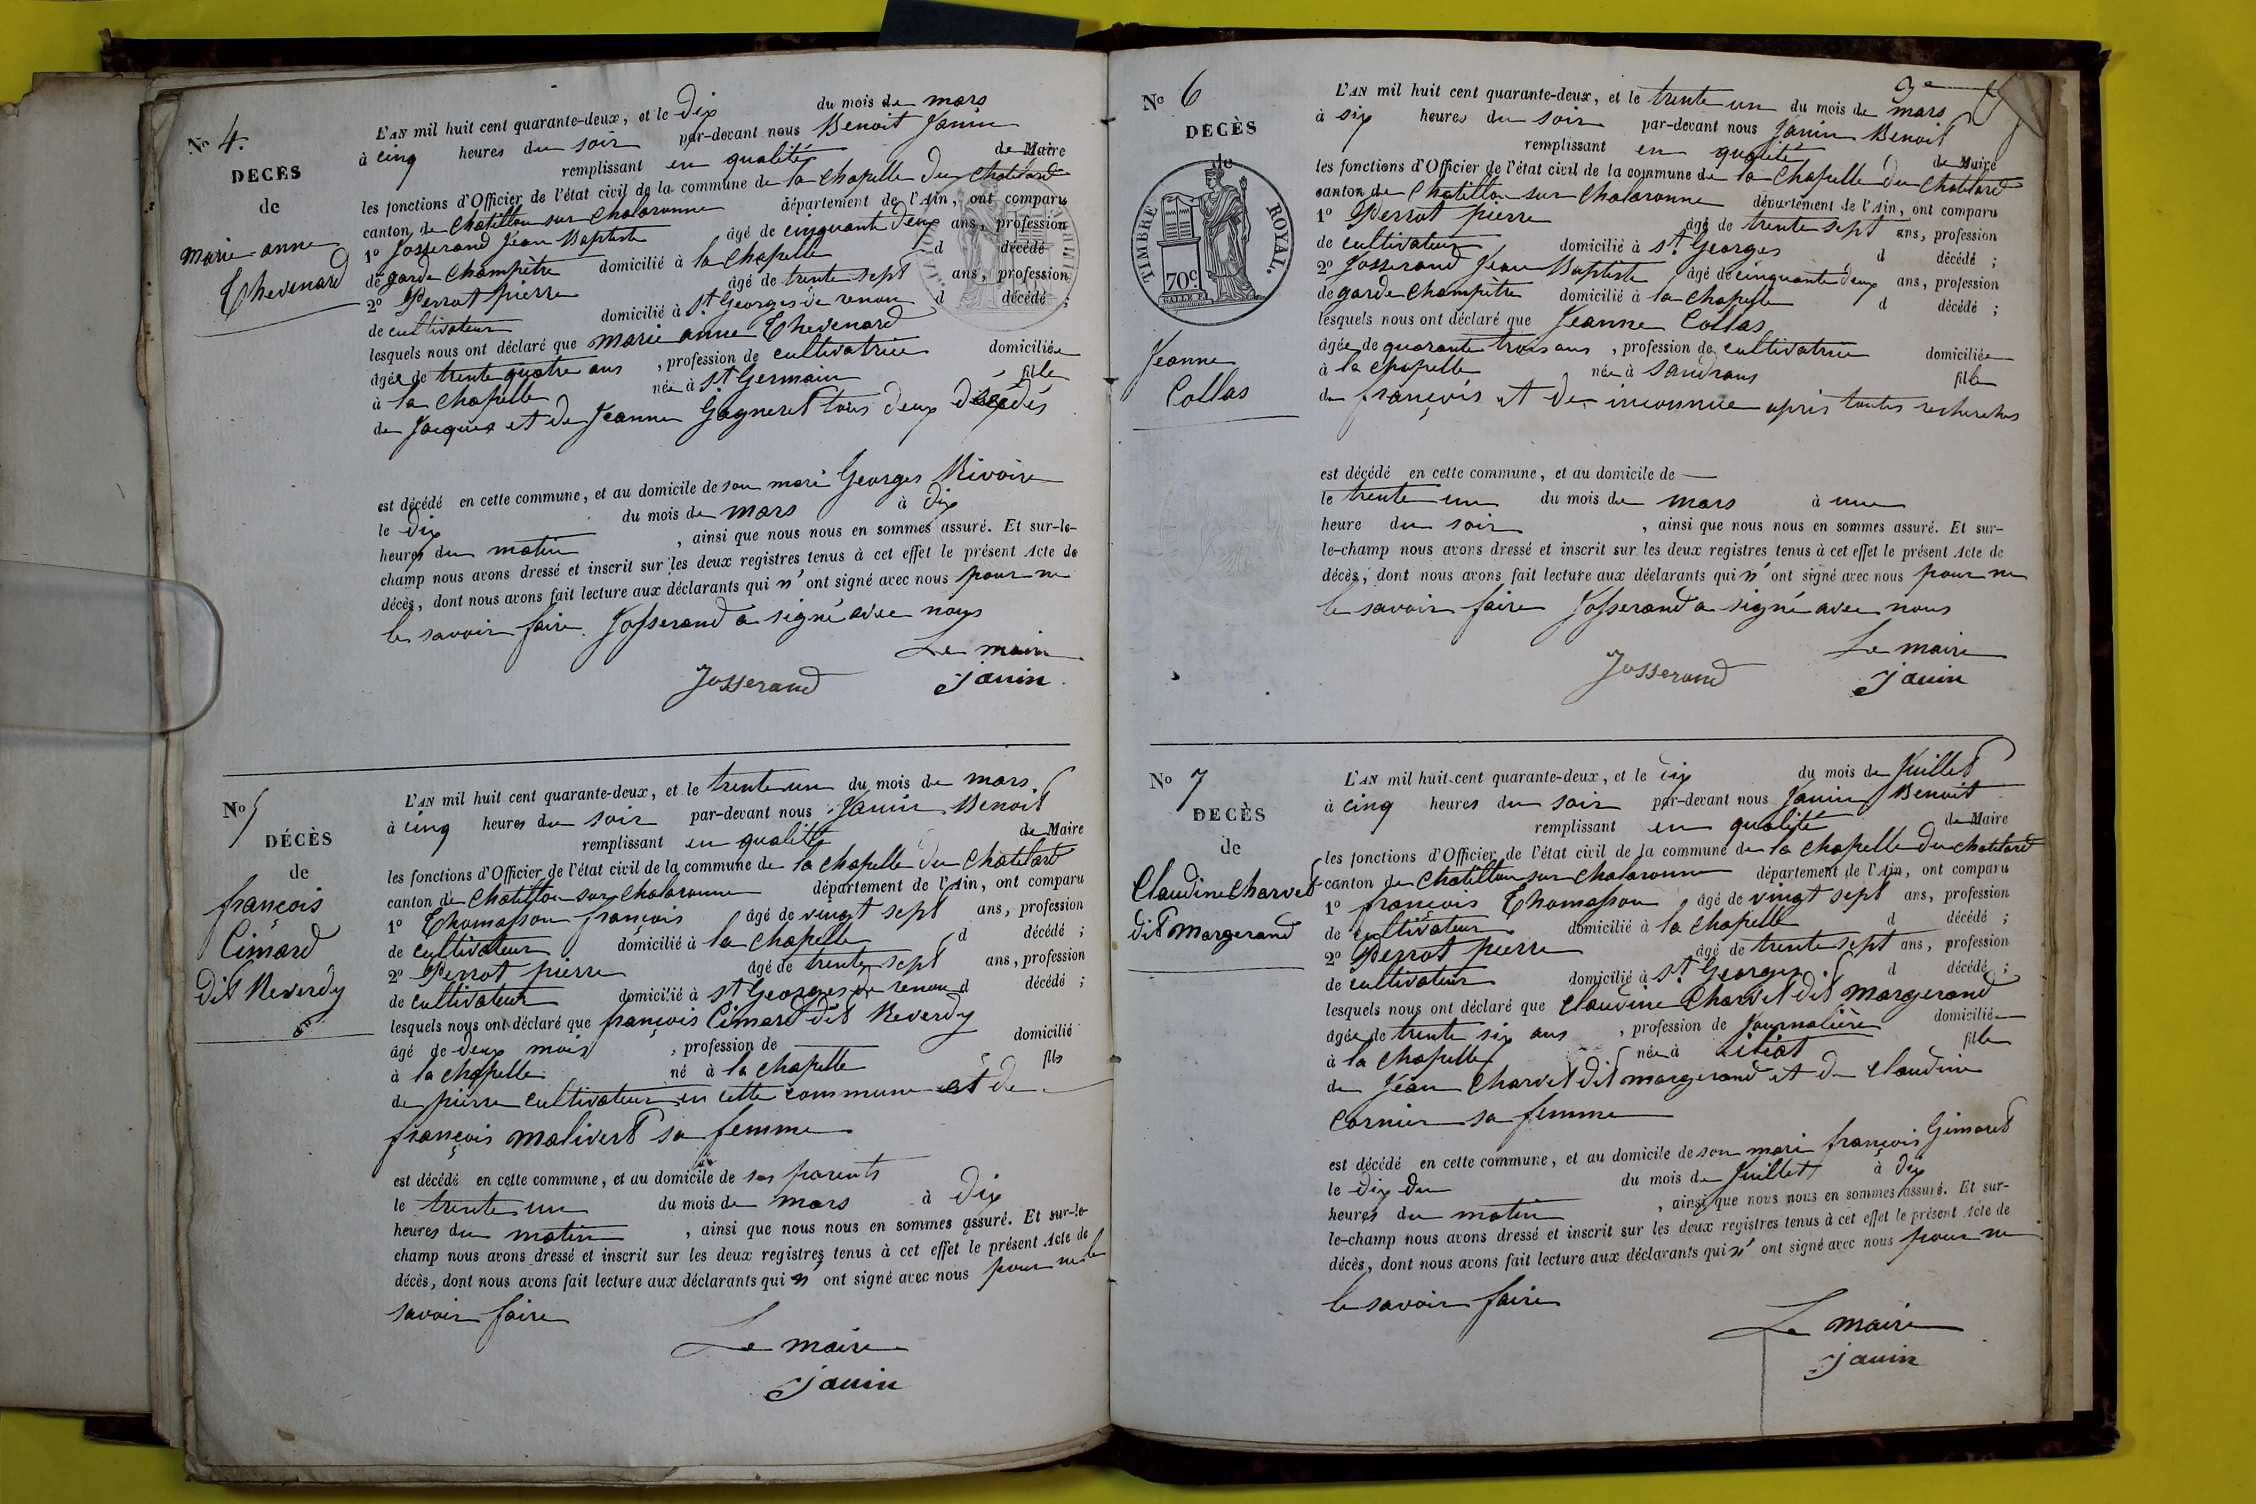 No 4.
DECES
de
marie anne
Thevenard
L'AN mil huit cent quarante-deux, et le dix du mois de mars
à cinq heures du soir par-devant nous Benoit Janin
remplissant en qualité de Maire
les fonctions d'Officier de l'état civil de la commune de la chapelle du chatelard
canton de chatillon sur chalaronne département de l'Ain, ont comparu
1o Josserand Jean Baptiste âgé de cinquante deux ans, profession
de garde champêtre domicilié à la chapelle d décédé
2o Perrat pierre âgé de trente sept ans, profession
de cultivateur domicilié à st Georges de renon d décédé ;
lesquels nous ont déclaré que marie anne Thevenard
âgée de trente quatre ans , profession de cultivatrice domiciliée
à la chapelle née à st Germain fille
de Jacques et de Jeanne Gagneret tous deux décédés
est décédé en cette commune, et au domicile de son mari Georges Rivoire
le dix du mois de mars à dix
heures du matin , ainsi que nous nous en sommes assuré. Et sur-le-
champ nous avons dressé et inscrit sur les deux registres tenus à cet effet le présent Acte de
décès, dont nous avons fait lecture aux déclarants qui n' ont signé avec nous pour ne
le savoir faire. Josserand a signé avec nous
Le maire
Josserand janin
No 5
DÉCÈS
de
françois
Cimard
dit Reverdy
L'AN mil huit cent quarante-deux, et le trente un du mois de mars
à cinq heures du soir par-devant nous Janin Benoit
remplissant en qualité de Maire
les fonctions d'Officier de l'état civil de la commune de la chapelle du chatelard
canton de chatillon sur chalaronne département de l'Ain, ont comparu
1o Thomasson françois âgé de vingt sept ans, profession
de cultivateur domicilié à la chapelle d décédé ;
2o Perrat pierre âgé de trente sept ans, profession
de cultivateur domicilié à st Georges de renon d décédé ;
lesquels nous ont déclaré que françois Cimard dit Reverdy
âgé de deux mois , profession de domicilié
à la chapelle né à la chapelle fils
de pierre cultivateur en cette commune et de
françois malivert sa femme
est décédé en cette commune, et au domicile de ses parents
le trente un du mois de mars à dix
heures du matin , ainsi que nous nous en sommes assuré. Et sur-le-
champ nous avons dressé et inscrit sur les deux registres tenus à cet effet le présent Acte de
décès, dont nous avons fait lecture aux déclarants qui n' ont signé avec nous pour ne le
savoir faire
Le maire
janin
No 6
DECÈS
de
TIMBRE ROYAL.
70c.
Jeanne
Collas
L'AN mil huit cent quarante-deux, et le trente un du mois de mars
à six heures du soir par-devant nous Janin Benoit
remplissant en qualité de Maire
les fonctions d'Officier de l'état civil de la commune de la chapelle du chatelard
canton de chatillon sur chalaronne département de l'Ain, ont comparu
1o Perrat pierre âgé de trente sept ans, profession
de cultivateur domicilié à st Georges d décédé ;
2o Josserand Jean Baptiste âgé de cinquante deux ans, profession
de garde champêtre domicilié à la chapelle d décédé ;
lesquels nous ont déclaré que Jeanne Collas
âgée de quarante trois ans , profession de cultivatrice domiciliée
à la chapelle née à sandrans fille
de françois et de inconnue après toutes recherches
est décédé en cette commune, et au domicile de
le trente un du mois de mars à une
heure du soir , ainsi que nous nous en sommes assuré. Et sur-
le-champ nous avons dressé et inscrit sur les deux registres tenus à cet effet le présent Acte de
décès, dont nous avons fait lecture aux déclarants qui n' ont signé avec nous pour ne
le savoir faire Josserand a signé avec nous
Le maire
Josserand janin
No 7
DECÈS
de
Claudine Charvet
dit margerand
L'AN mil huit cent quarante-deux, et le dix du mois de Juillet
à cinq heures du soir par-devant nous Janin Benoit
remplissant en qualité de Maire
les fonctions d'Officier de l'état civil de la commune de la chapelle du chatelard
canton de chatillon sur chalaronne département de l'Ain, ont comparu
1o françois Thomasson âgé de vingt sept ans, profession
de cultivateur domicilié à la chapelle d décédé ;
2o Perrat pierre âgé de trente sept ans, profession
de cultivateur domicilié à st Georges d décédé ;
lesquels nous ont déclaré que claudine Charvet dit margerand
âgée de trente six ans , profession de Journalière domiciliée
à la chapelle née à fille
de Jean Charvet dit margerand et de claudine
Cornier sa femme
est décédé en cette commune, et au domicile de son mari françois Gimaret
le dix du du mois de Juillet à dix
heures du matin , ainsi que nous nous en sommes assuré. Et sur-
le-champ nous avons dressé et inscrit sur les deux registres tenus à cet effet le présent Acte de
décès, dont nous avons fait lecture aux déclarants qui n' ont signé avec nous pour ne
le savoir faire
Le maire
janin